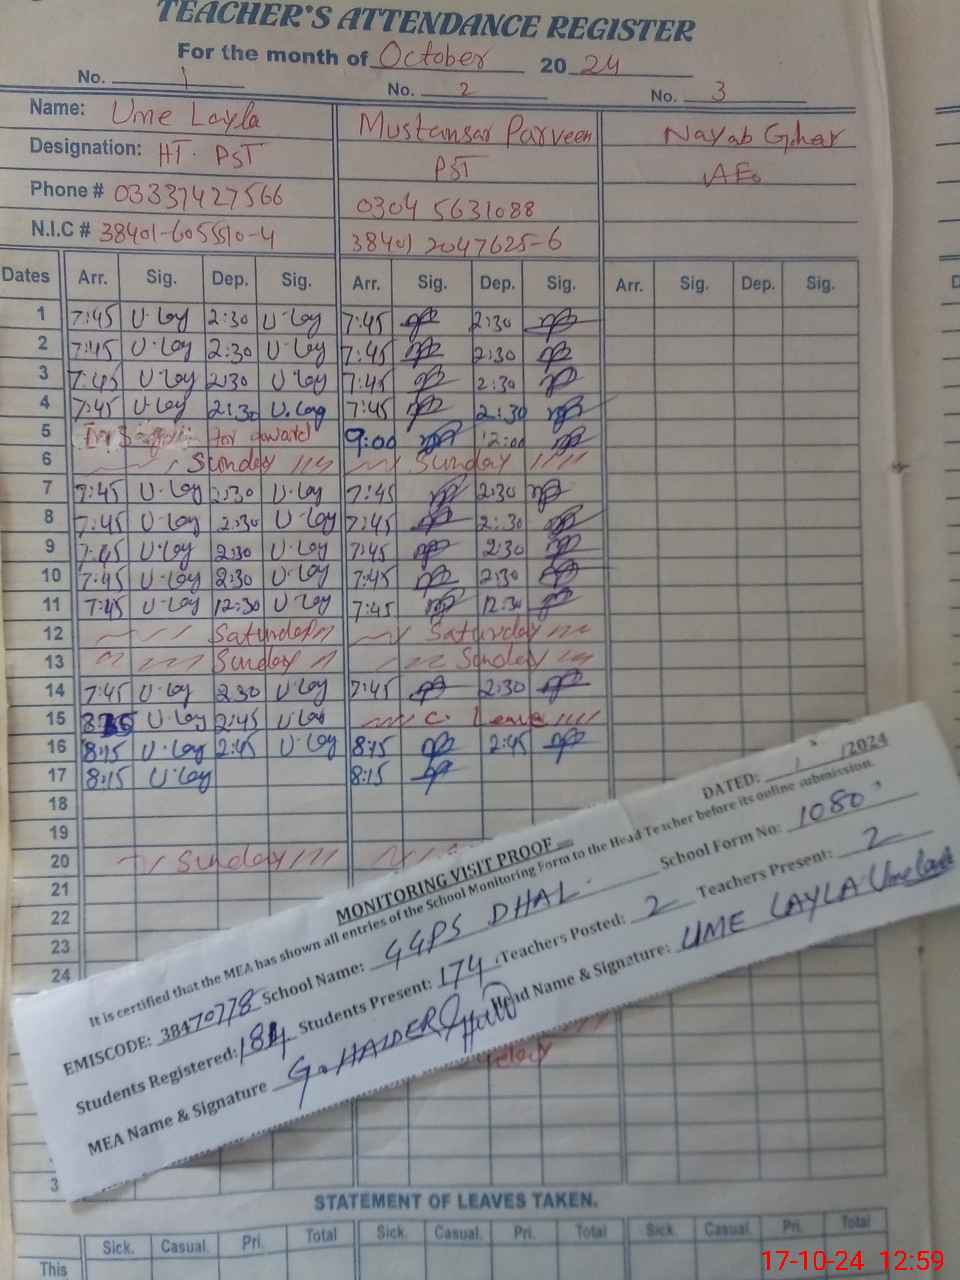 TEACHER'S ATTENDANCE REGISTER
For the month of October 2024
No. 1 No. 2 No. 3
Name: Ume Layla Mustansar Parveen Nayab Gohar
Designation: HT. PST PST AEo
Phone # 03337427566 0304 5631088
N.I.C # 38401-6055510-4 38401 2047625-6
Dates Arr. Sig. Dep. Sig. Arr. Sig. Dep. Sig. Arr. Sig. Dep. Sig.
1 7:45 U-Lay 2:30 U-Lay 7:45 2:30
2 7:45 U-Lay 2:30 U-Lay 7:45 2:30
3 7:45 U-Lay 2:30 U-Lay 7:45 2:30
4 7:45 U-Lay 2:30 U-Lay 7:45 2:30
5 for award 9:00 12:00
6 Sunday Sunday
7 7:45 U-Lay 2:30 U-Lay 7:45 2:30
8 7:45 U-Lay 2:30 U-Lay 7:45 2:30
9 7:45 U-Lay 2:30 U-Lay 7:45 2:30
10 7:45 U-Lay 2:30 U-Lay 7:45 2:30
11 7:45 U-Lay 12:30 U-Lay 7:45 12:30
12 Saturday Saturday
13 Sunday Sunday
14 7:45 U-Lay 2:30 U-Lay 7:45 2:30
15 U-Lay 2:45 U-Lay C. Leave
16 8:15 U-Lay 2:45 U-Lay 8:15 2:45
17 8:15 U-Lay 8:15
18
19
20 Sunday
21
22
23
24
MONITORING VISIT PROOF
DATED: / /2024
It is certified that the MEA has shown all entries of the School Monitoring Form to the Head Teacher before its online submission.
EMISCODE: 38470778 School Name: GGPS DHAL School Form No: 1080
Students Registered: 184 Students Present: 174 Teachers Posted: 2 Teachers Present: 2
MEA Name & Signature G. HAIDER Head Name & Signature: UME LAYLA
3
STATEMENT OF LEAVES TAKEN.
Sick. Casual. Pri. Total Sick. Casual. Pri. Total Sick. Casual. Pri. Total
This
17-10-24 12:59